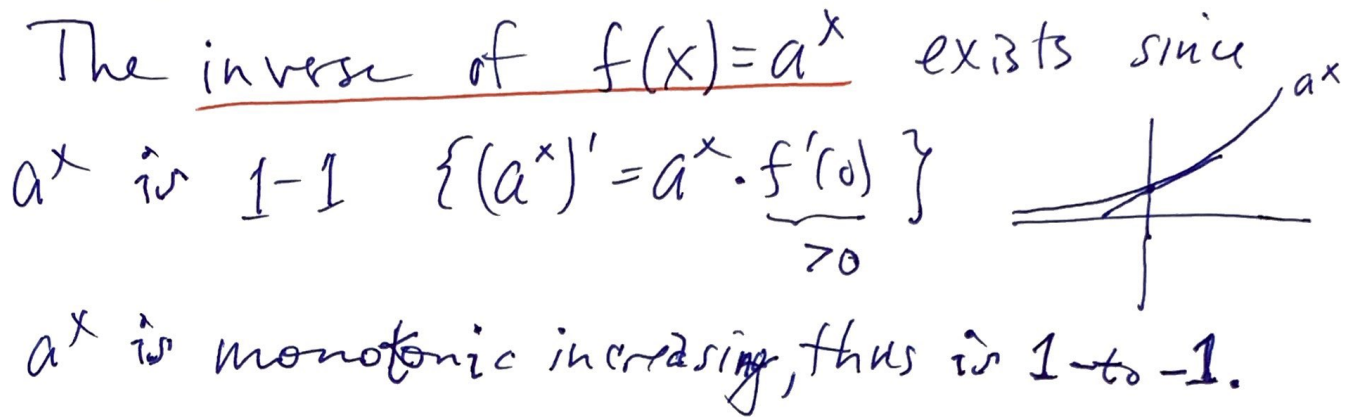 The inverse of f(x)=aˣ exists since
aˣ
aˣ is 1-1 {(aˣ)' = aˣ · f'(0)}
>0
aˣ is monotonic increasing, thus is 1-to-1.